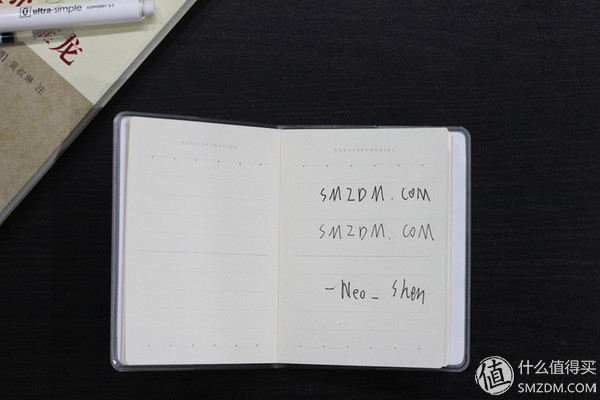 ultra·simple
龙
黄叔琳 注
SMZDM.COM
SMZDM.COM
-Neo_ Shen
值 什么值得买
SMZDM.COM